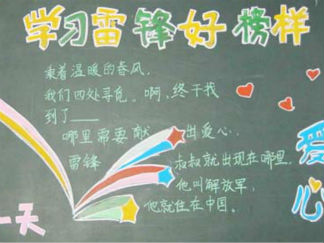 学习雷锋好榜样
乘着温暖的春风,
我们四处寻觅。啊,终于找
到了____
哪里需要献出爱心,
雷锋叔叔就出现在哪里,
他叫解放军,
他就住在中国。
爱心
一天